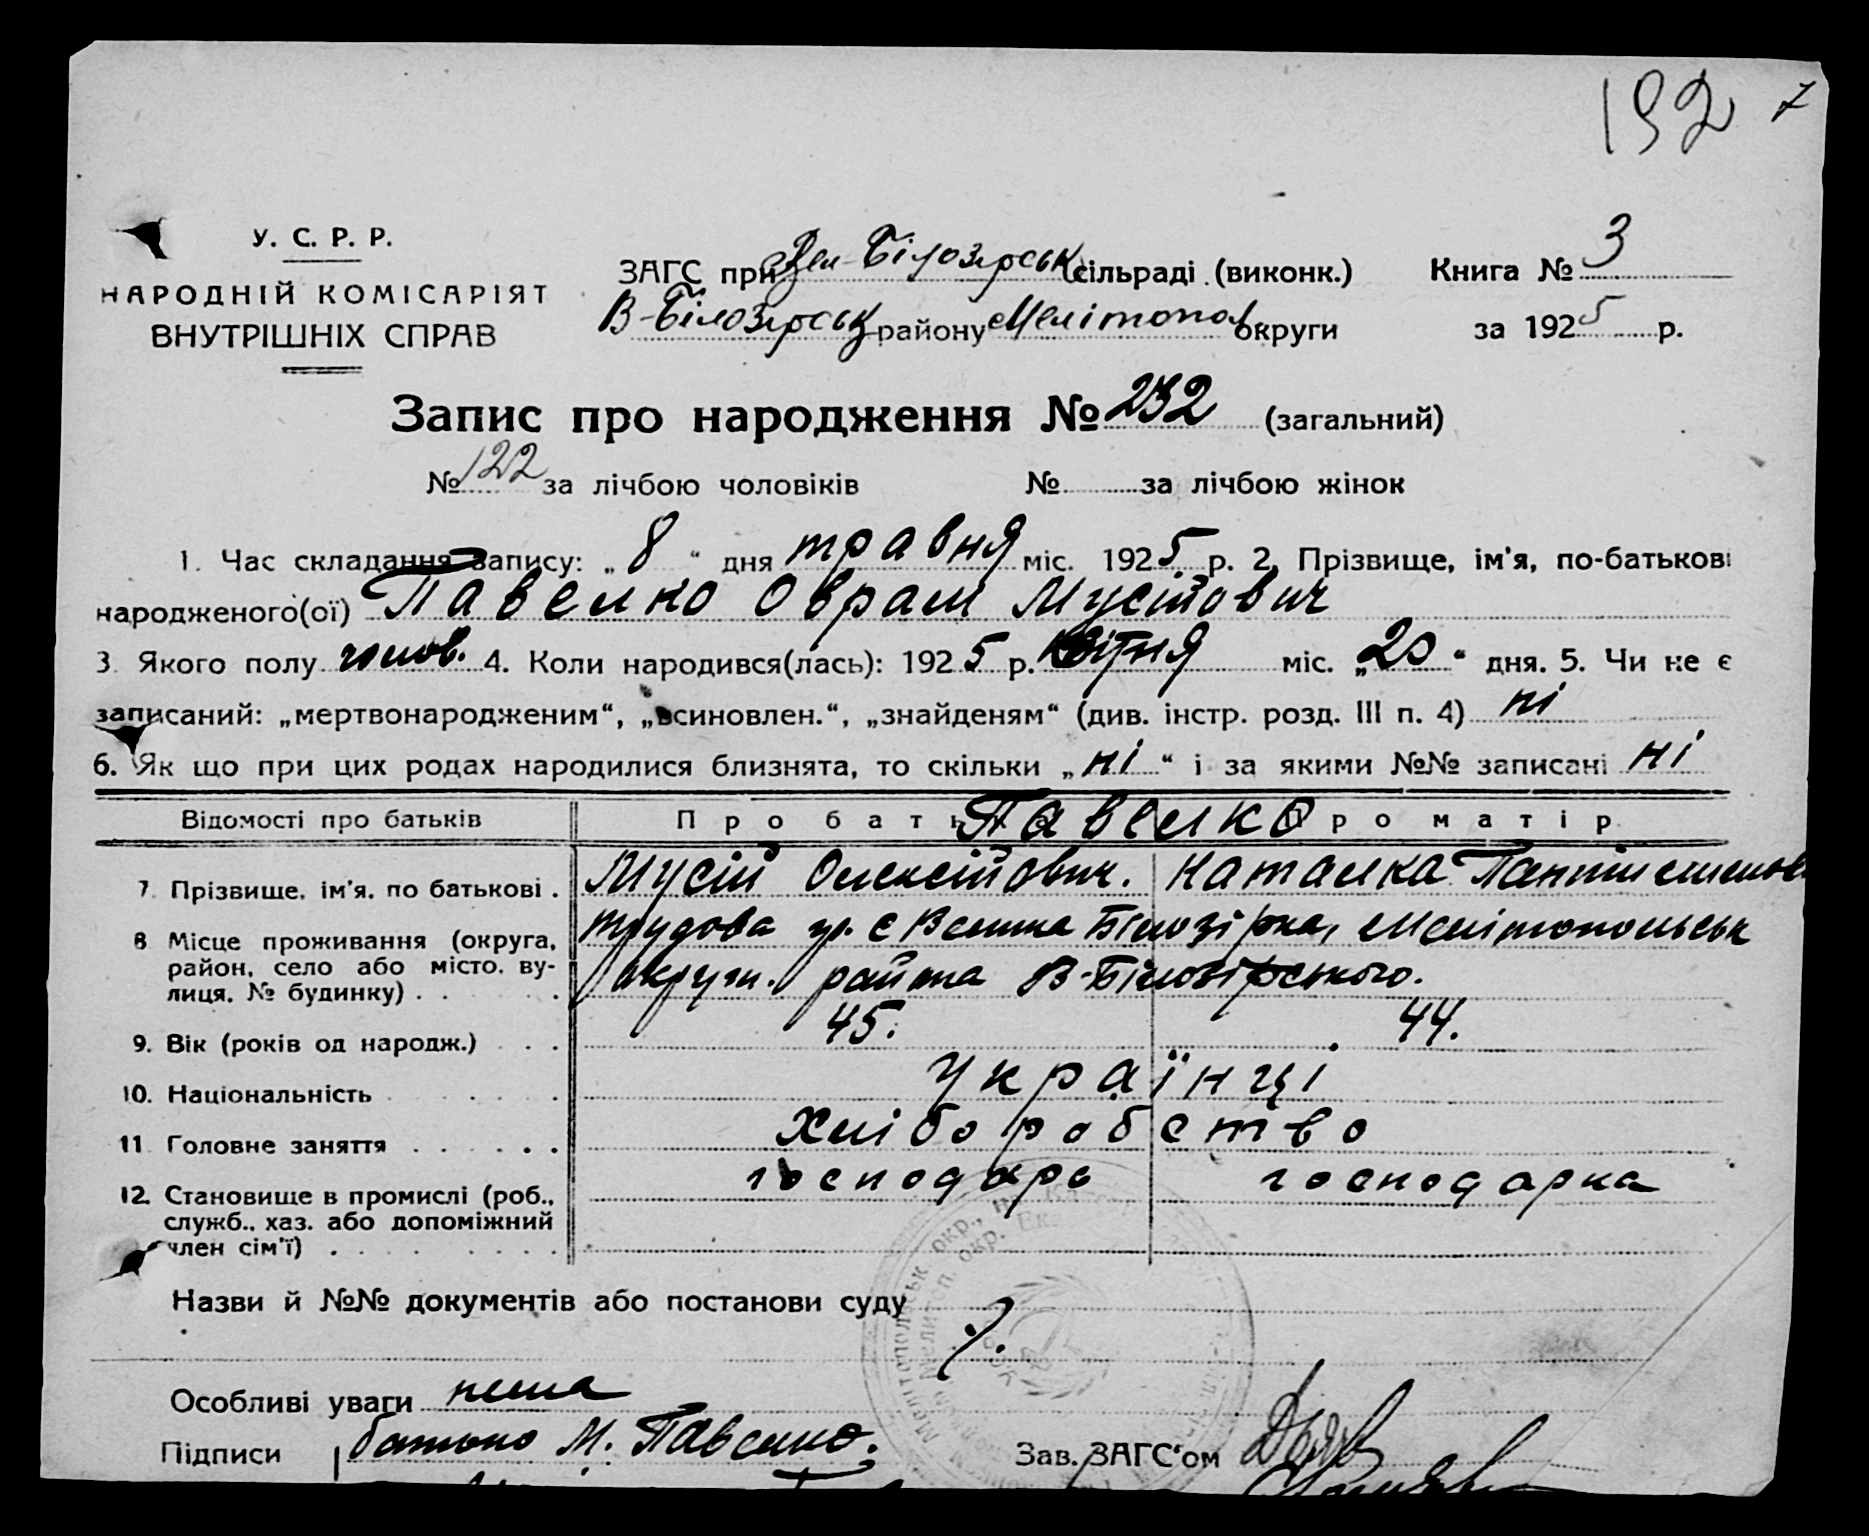 192 7
У. С. Р. Р.
НАРОДНІЙ КОМІСАРІЯТ
ВНУТРІШНІХ СПРАВ
ЗАГС при Вел-Білозірськ сільраді (виконк.)
В-Білозірськ району Мелітопол округи
Книга № 3
за 1925 р.
Запис про народження № 232 (загальний)
№ 122 за лічбою чоловіків № за лічбою жінок
1. Час складання запису: „8“ дня травня міс. 1925 р. 2. Прізвище, ім'я, по-батькові
народженого(ої) Павелко Оврам Мусійович
3. Якого полу чолов. 4. Коли народився(лась): 1925 р. Квітня міс. „20“ дня. 5. Чи не є
записаний: „мертвонародженим“, „всиновлен.“, „знайденям“ (див. інстр. розд. III п. 4) ні
6. Як що при цих родах народилися близнята, то скільки „ні“ і за якими №№ записані ні
Відомості про батьків Про батька Про матір
Павелко
7. Прізвище, ім'я, по батькові . Мусій Олексійович. Наталка
8. Місце проживання (округа, район, село або місто, вулиця, № будинку) . . . трудова гр. с Велика Білозірка, Мелітопольськ
округи. района В-Білозірського.
9. Вік (років од народж.) . . . 45. 44.
10. Національність . . . Українці
11. Головне заняття . . . . . . Хлібо робство
12. Становище в промислі (роб., господарь господарка
служб., хаз. або допоміжний
член сім'ї) . . . . . .
Назви й №№ документів або постанови суду
Особливі уваги нема
Підписи батько М. Павелко. Зав. ЗАГС'ом